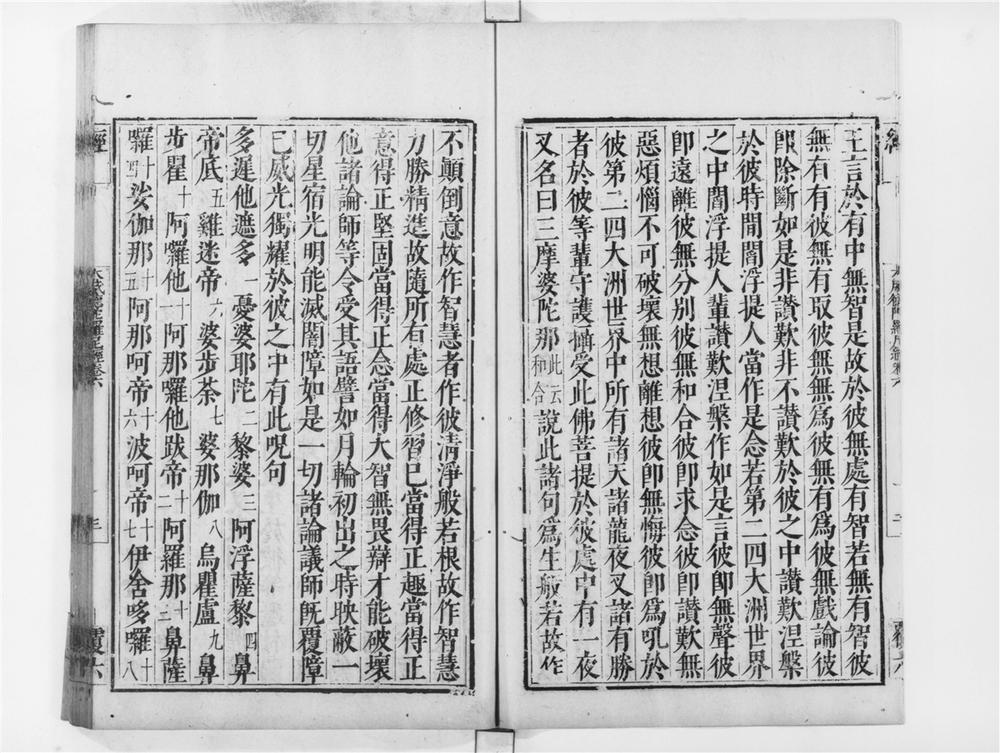 王言於有中無智是故於彼無處有智若無有智彼
無有有彼無有取彼無無為彼無有為彼無戲論彼
即除斷如是非讚歎非不讚歎於彼之中讚歎涅槃
於彼時間閻浮提人當作是念若第二四大洲世界
之中閻浮提人輩讚歎涅槃作如是言彼即無聲彼
即遠離彼無分別彼無和合彼即求念彼即讚歎無
惡煩惱不可破壞無想離想彼即無悔彼即為吼於
彼第二四大洲世界中所有諸天諸龍夜叉諸有勝
者於彼等輩守護攝受此佛菩提於彼處中有一夜
叉名曰三摩婆陀那此云和合說此諸句為生般若故作
經
大威德陀羅尼經卷六
三
覆六
不顛倒意故作智慧者作彼清淨般若根故作智慧
力勝精進故隨所有處正修習已當得正趣當得正
意得正堅固當得正念當得大智無畏辯才能破壞
他諸論師等令受其語譬如月輪初出之時映蔽一
切星宿光明能滅闇障如是一切諸論議師既覆障
已威光獨耀於彼之中有此呪句
多遲他遮多一憂婆耶陀二黎婆三阿浮薩黎四鼻
帝底五雞迷帝六婆步荼七婆那伽八烏瞿盧九鼻
步瞿十阿囉他十一阿那囉他跋帝十二阿羅那十三鼻薩
囉十四娑伽那十五阿那呵帝十六波呵帝十七伊舍哆囉十八
經
大威德陀羅尼經卷六
三
覆六